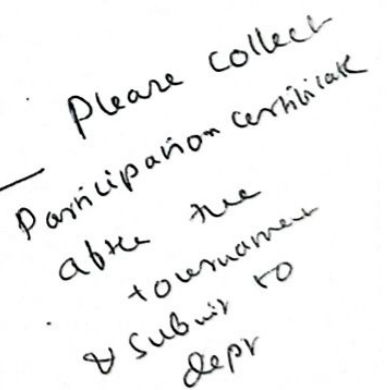 Please collect
Participation certificate
after the
tournament
& submit to
dept